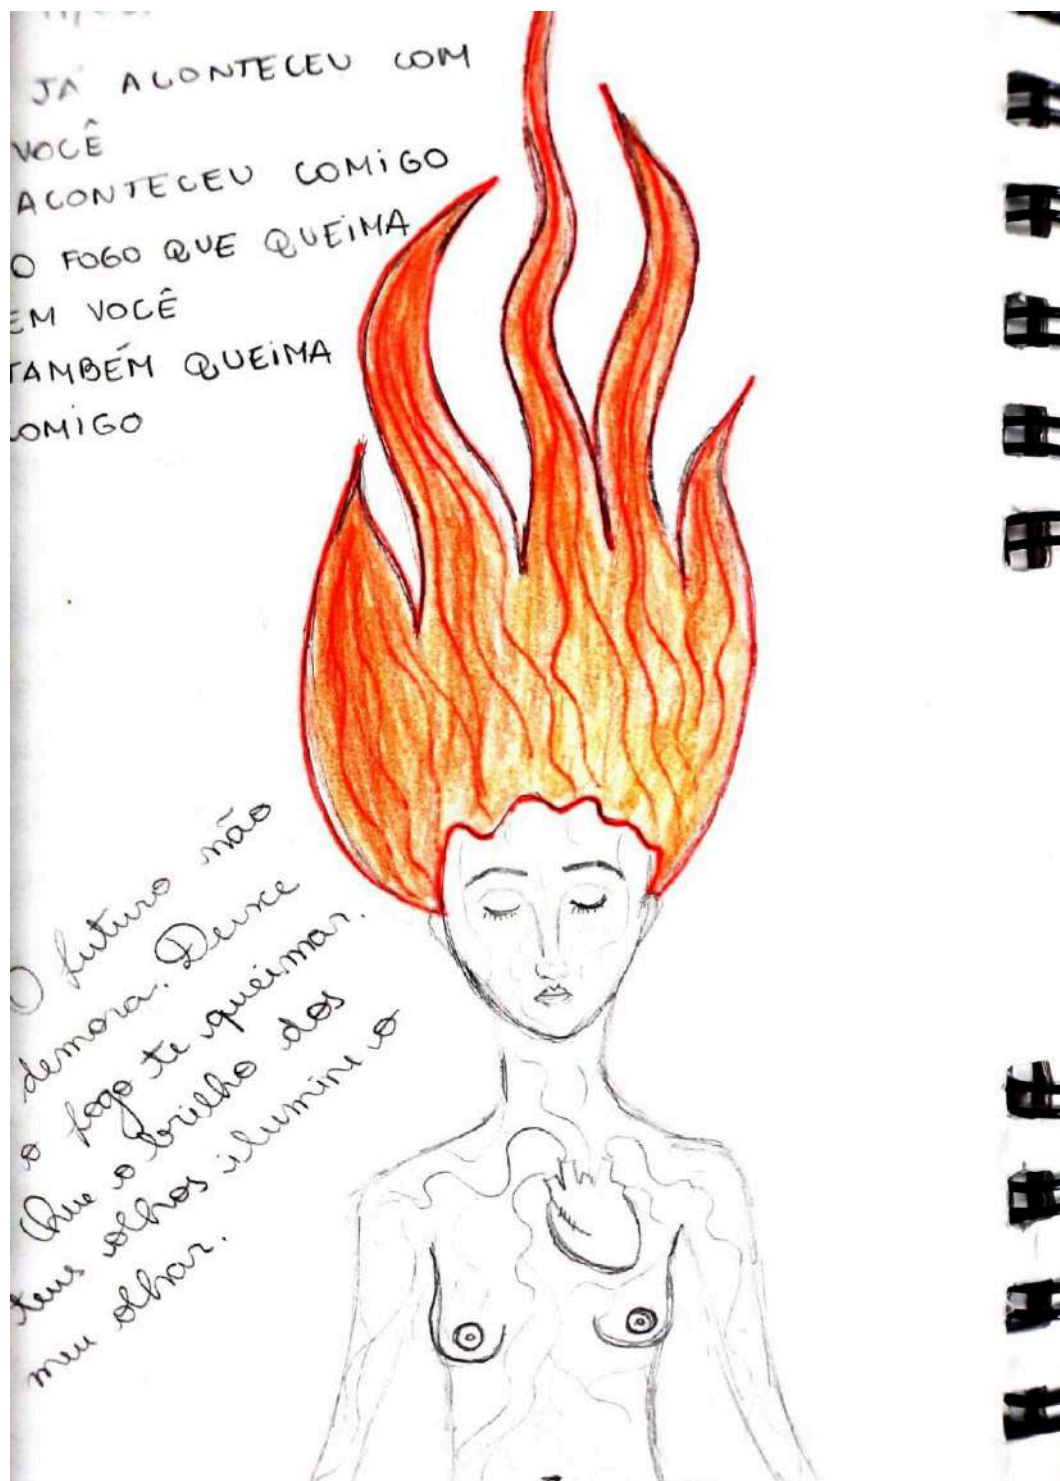 JÁ ACONTECEU COM
VOCÊ
ACONTECEU COMIGO
O FOGO QUE QUEIMA
EM VOCÊ
TAMBÉM QUEIMA
COMIGO
O futuro não
demora. Deixe
o fogo te queimar.
Que o brilho dos
teus olhos ilumine o
meu olhar.